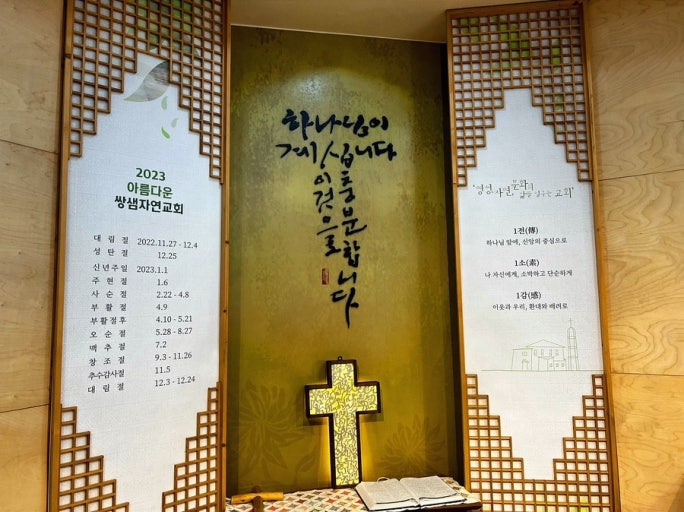 2023
아름다운
쌍샘자연교회
대 림 절 2022.11.27 - 12.4
성 탄 절 12.25
신년주일 2023.1.1
주 현 절 1.6
사 순 절 2.22 - 4.8
부 활 절 4.9
부활절후 4.10 - 5.21
오 순 절 5.28 - 8.27
맥 추 절 7.2
창 조 절 9.3 - 11.26
추수감사절 11.5
대 림 절 12.3 - 12.24
하나님이
계십니다
이것으로
충분합니다
"영성, 자연, 문화의
삶을 일구는 교회"
1전(傳)
하나님 앞에, 신앙의 중심으로
1소(素)
나 자신에게, 소박하고 단순하게
1감(感)
이웃과 우리, 환대와 배려로